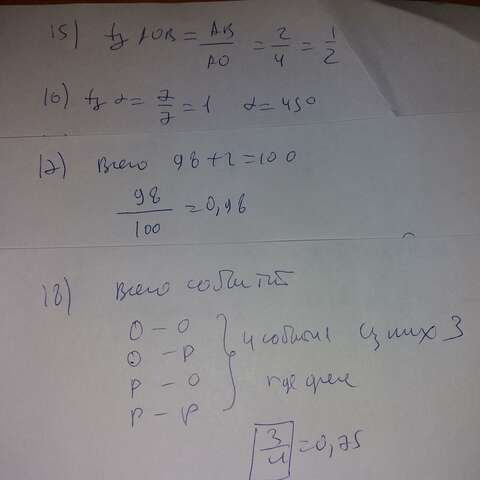 15) tg AOB = AB/AO = 2/4 = 1/2
16) tg α = 7/7 = 1 α = 45°
17) Всего 98 + 2 = 100
98/100 = 0,98
18) Всего событий
О – О
О – Р
Р – О
Р – Р
4 события из них 3
3/4 = 0,75